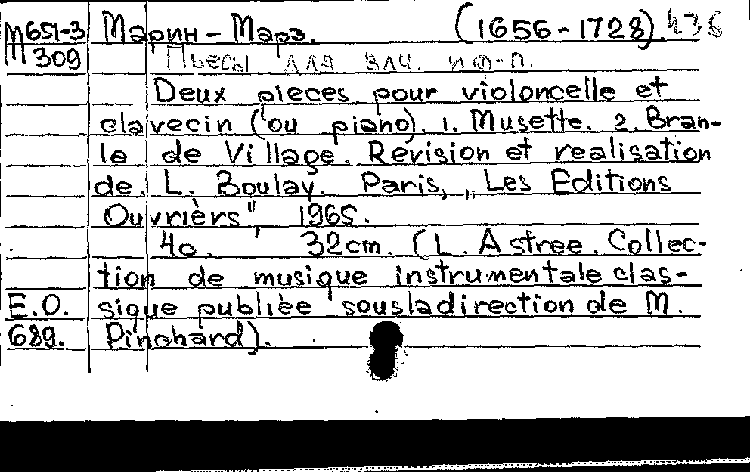 М651-3 Марин-Марэ. (1656-1728). 436
309 Пьесы для влч. и ф-п.
Deux pieces pour violoncelle et
clavecin (ou piano). 1. Musette. 2. Bran-
le de Village. Révision et realisation
de L. Boulay. Paris, „Les Editions
Ouvrièrs", 1965.
4с. 32cm. (L. Astree. Collec-
tion de musique instrumentale clas-
E.O. sique publiée sousladirection de M.
689. Pinchard).